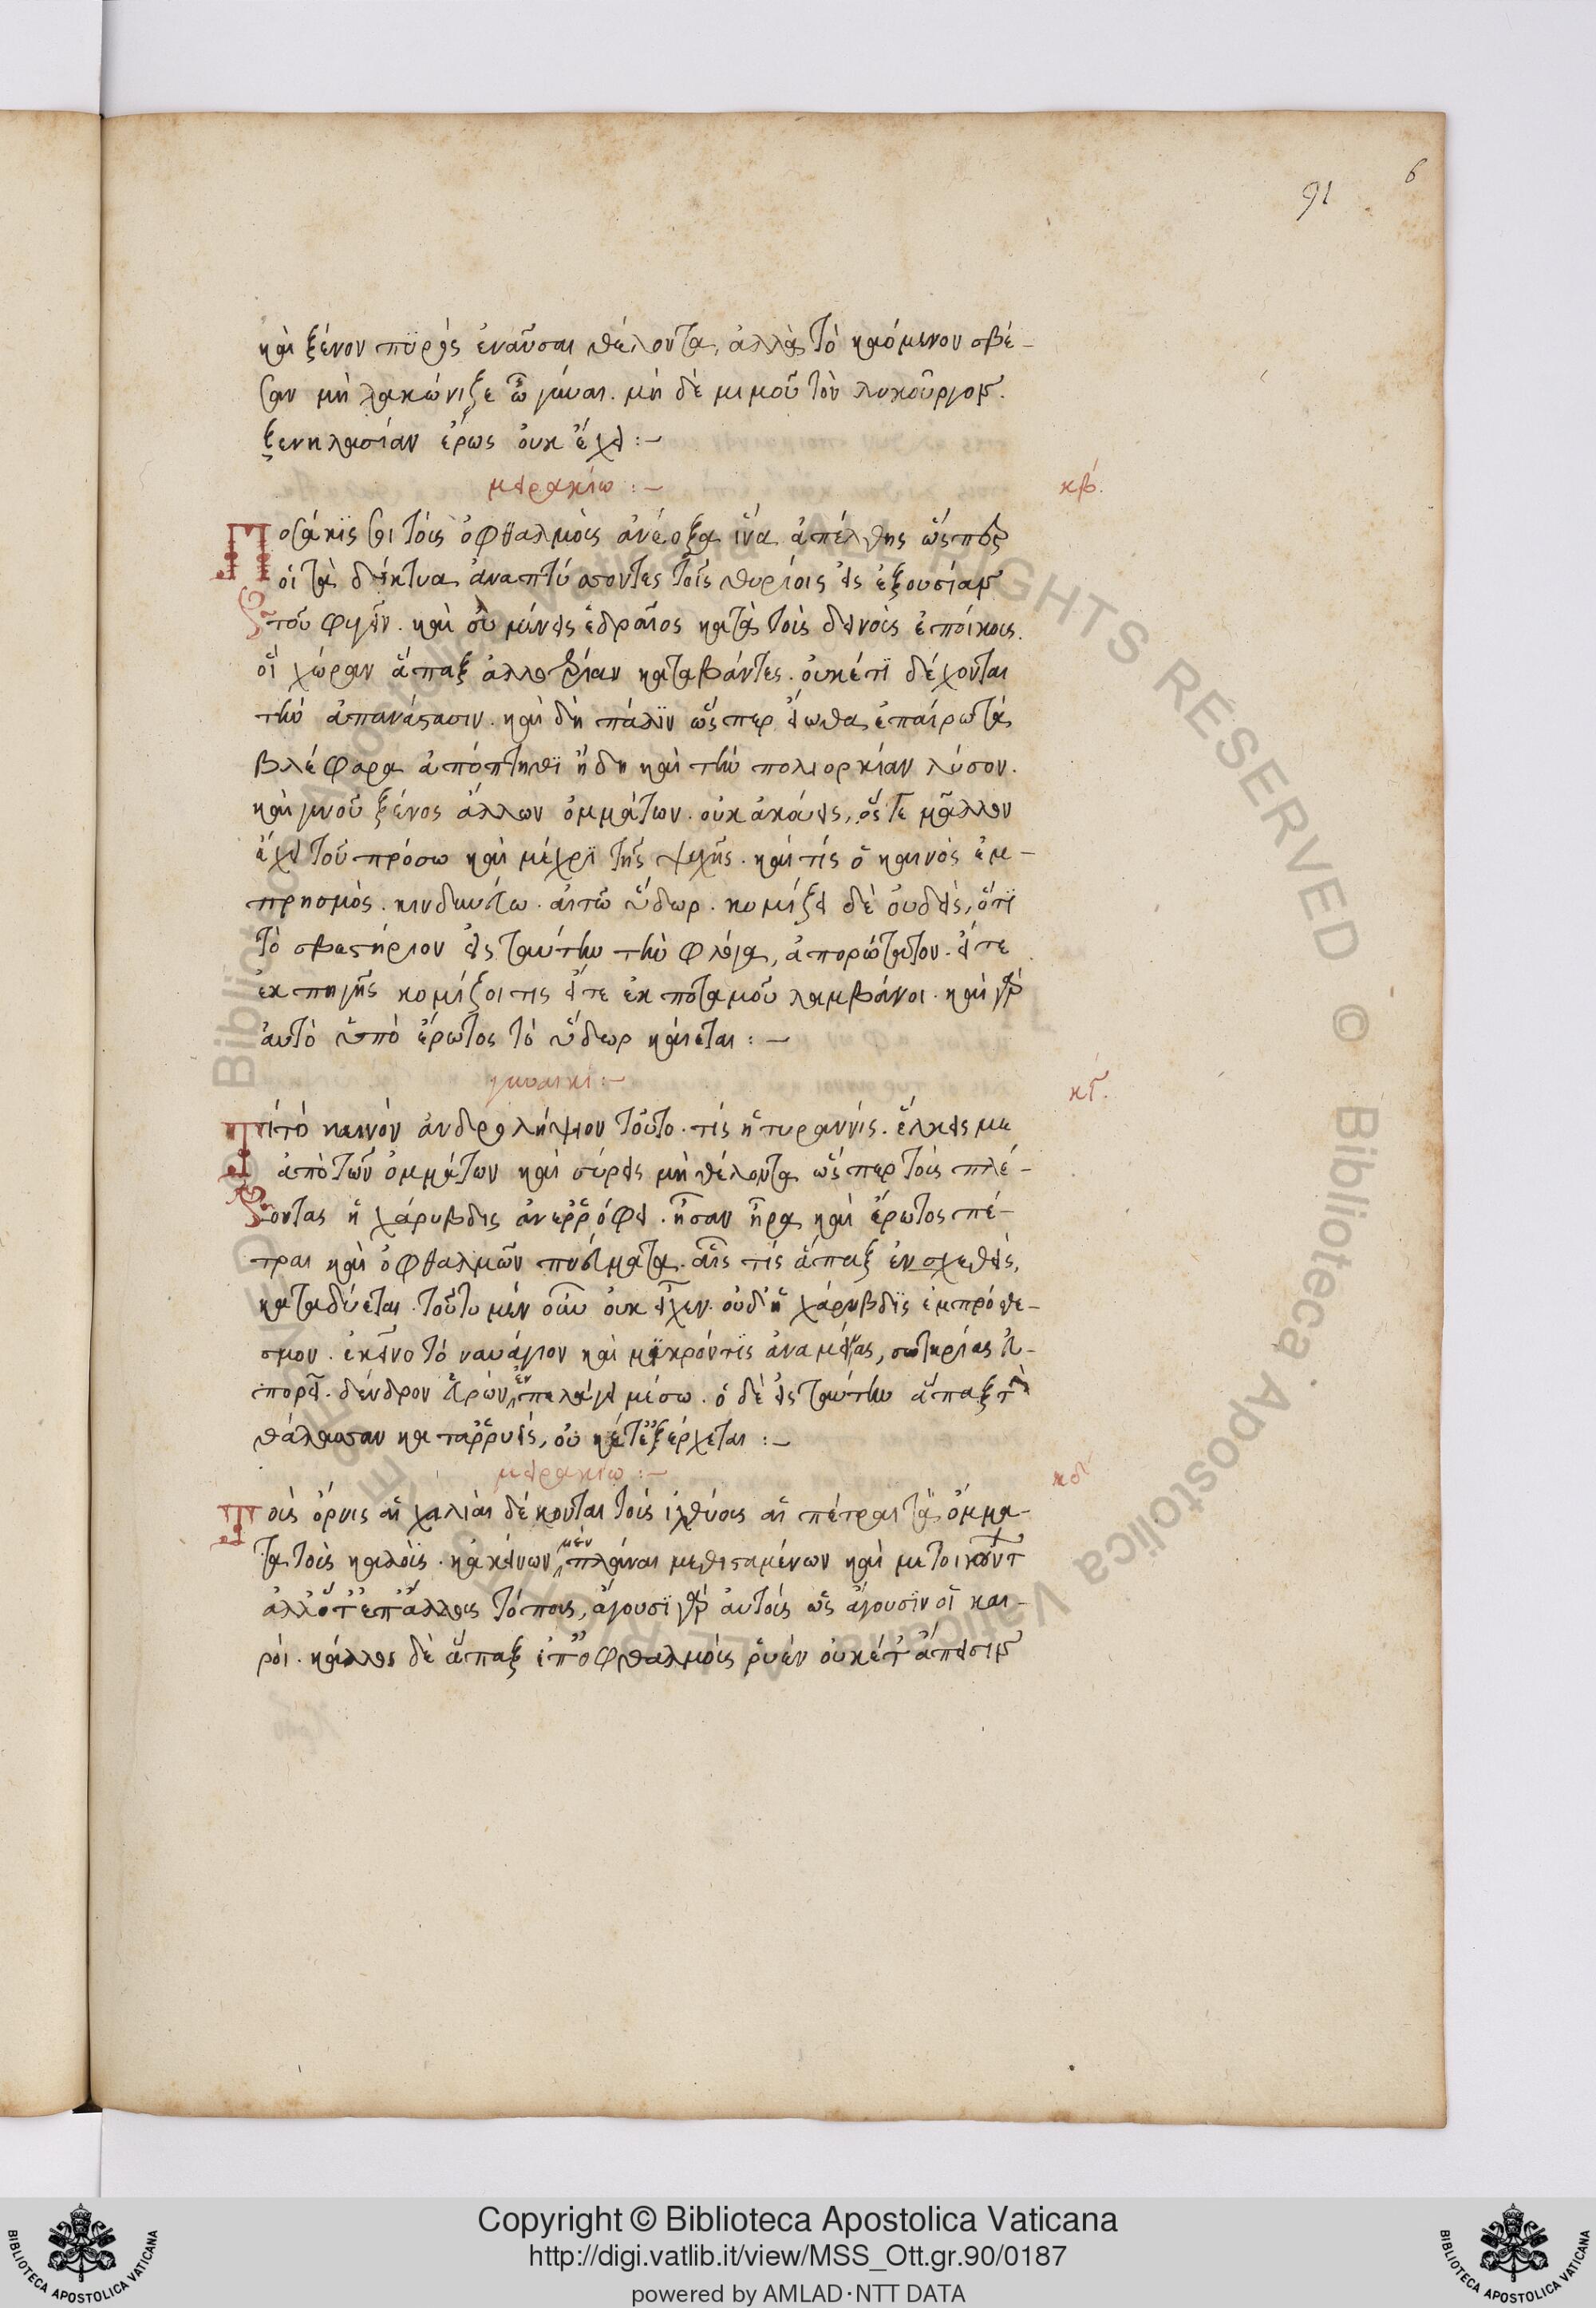 91
6
καὶ ξένον πϋρὸς ἐναῦσαι θέλοντα, ἀλλὰ τὸ καιόμενον σβέ-
σαν μὴ λακώνιζε ὦ γύναι. μὴ δὲ μιμοῦ τὸν λυκοῦργον.
ξενηλασίαν ἔρως οὐκ ἔχει :-
μειρακίω :-
κβ.
Ποσάκϊς σοι τοὺς ὀφθαλμοὺς ἀνέωξα ἵνα ἀπέλθης ὥσπερ
οἱ τὰ δίκτυα ἀναπτύσσοντες τοῖς θηρίοις εἰς ἐξουσίαν
τοῦ φυγεῖν. καὶ σὺ μένεις ἑδραῖος κατὰ τοὺς δεινοὺς ἐποίκους.
οἳ χώραν ἅπαξ ἀλλοτρίαν καταβάντες. οὐκέτϊ δέχονται
τὴν ἀπανάστασιν. καὶ δὴ πάλϊν ὥσπερ εἴωθα ἐπαίρω τὰ
βλέφαρα ἀπόπτηθϊ ἤδη καὶ τὴν πολιορκίαν λύσον.
καὶ γενοῦ ξένος ἄλλων ὀμμάτων. οὐκ ἀκούεις, ὅς γε μᾶλλον
ἔχει τοῦ πρόσω καὶ μέχρϊ τῆς ψυχῆς. καὶ τίς ὁ καινὸς ἐμ-
πρησμός. κινδυνεύω. αἰτῶ ὕδωρ. κομίζει δὲ οὐδεὶς, ὅτϊ
τὸ σβεστήριον εἰς ταύτην τὴν φλόγα, ἀπορώτατον. εἴτε
ἐκ πηγῆς κομίζοι τις εἴτε ἐκ ποταμοῦ λαμβάνοι. καὶ γὰρ
αὐτὸ ὑπὸ ἔρωτος τὸ ὕδωρ καίεται : -
γυναικί :-
κγ.
Τί τὸ καινὸν ἀνδρολήψιον τοῦτο. τίς ἡ τυραννίς. ἕλκεις με
ἀπὸ τῶν ὀμμάτων καὶ σύρεις μὴ θέλοντα ὥσπερ τοὺς πλέ-
οντας ἡ χάρυβδις ἀνερρόφει. ἦσαν ἦρα καὶ ἔρωτος πέ-
τραι καὶ ὀφθαλμῶν πνεύματα. αἷς τίς ἅπαξ ἐνσχεθεὶς,
καταδύεται. τοῦτο μὲν οὖν οὐκ εἶχεν. οὐδ' ἡ χάρυβδϊς ἐμπρόθε-
σμον. ἐκεῖνο τὸ ναυάγιον καὶ μικρόν τϊς ἀναμείνας, σωτηρίας εὐ-
πορεῖ. δένδρον ὁρῶν ἐν πελάγει μέσω. ὁ δὲ εἰς ταύτην ἅπαξ τὴν
θάλασσαν καταρρυεὶς, οὐκέτ' ἐξέρχεται :-
μειρακίω :-
κδ
Τοὺς ὄρνις αἱ καλιαὶ δέχονται τοὺς ἰχθύας αἱ πέτραι τὰ ὄμμα-
τα τοὺς καλοὺς. κἀκείνων μὲν πλάναι μεθισταμένων καὶ μετοικούντων
ἄλλοτ' ἐπ' ἄλλους τόπους, ἄγουσϊ γὰρ αὐτοὺς ὡς ἄγουσϊν οἱ και-
ροί. κάλλος δὲ ἅπαξ ἐπ' ὀφθαλμοὺς ῥυὲν οὐκέτ' ἄπεισιν